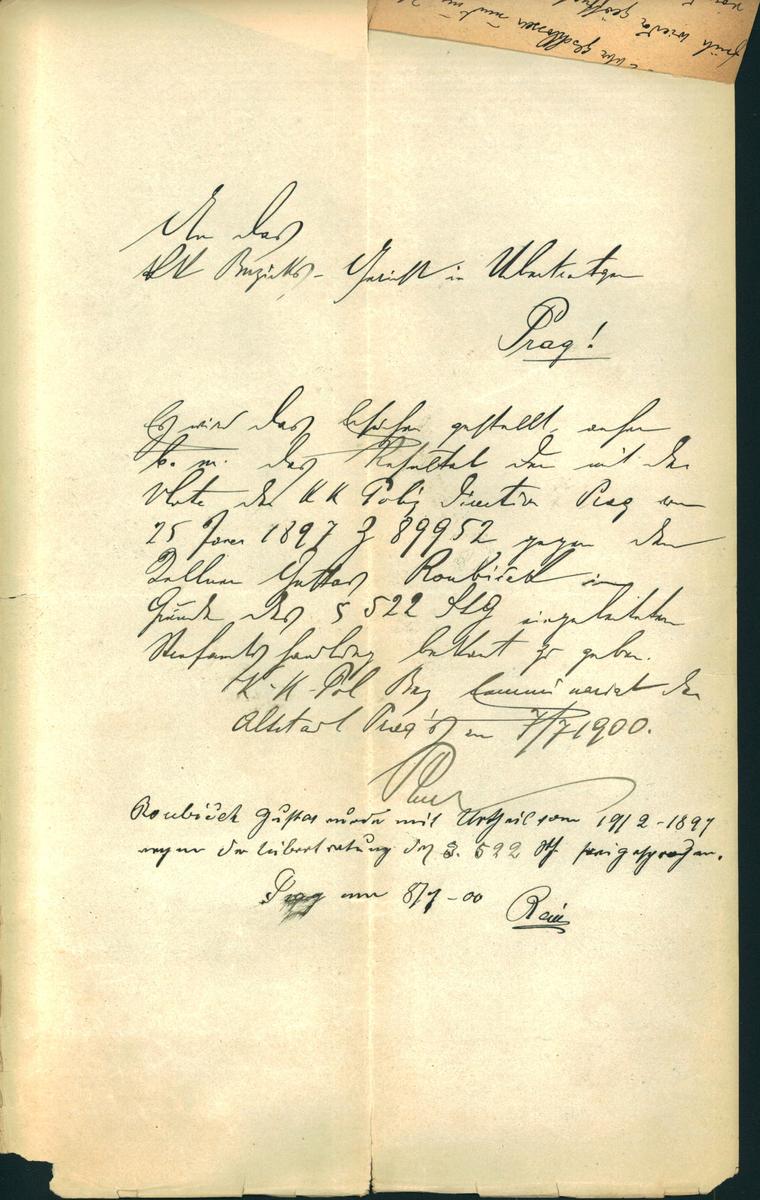 An das
KK Bezirks-Gericht in Uibertretungen
Prag!
Es wird das Ersuchen gestellt, anher
b. m. das Resultat der mit der
Note der KK Poliz Direction Prag vom
25 Jänner 1897 Z 89952 gegen den
Kellner Gustav Roubíček im
Grunde des § 522 StG eingeleiteten
Strafamtshandlung bekannt zu geben.
K.K. Pol Bez Commissariat der
Altstadt Prag's am 7/7 1900.
Roubíček Gustav wurde mit Urtheil vom 19/2-1897
wegen der Uibertretung des §. 522 StG freigesprochen.
Prag am 8/7-00